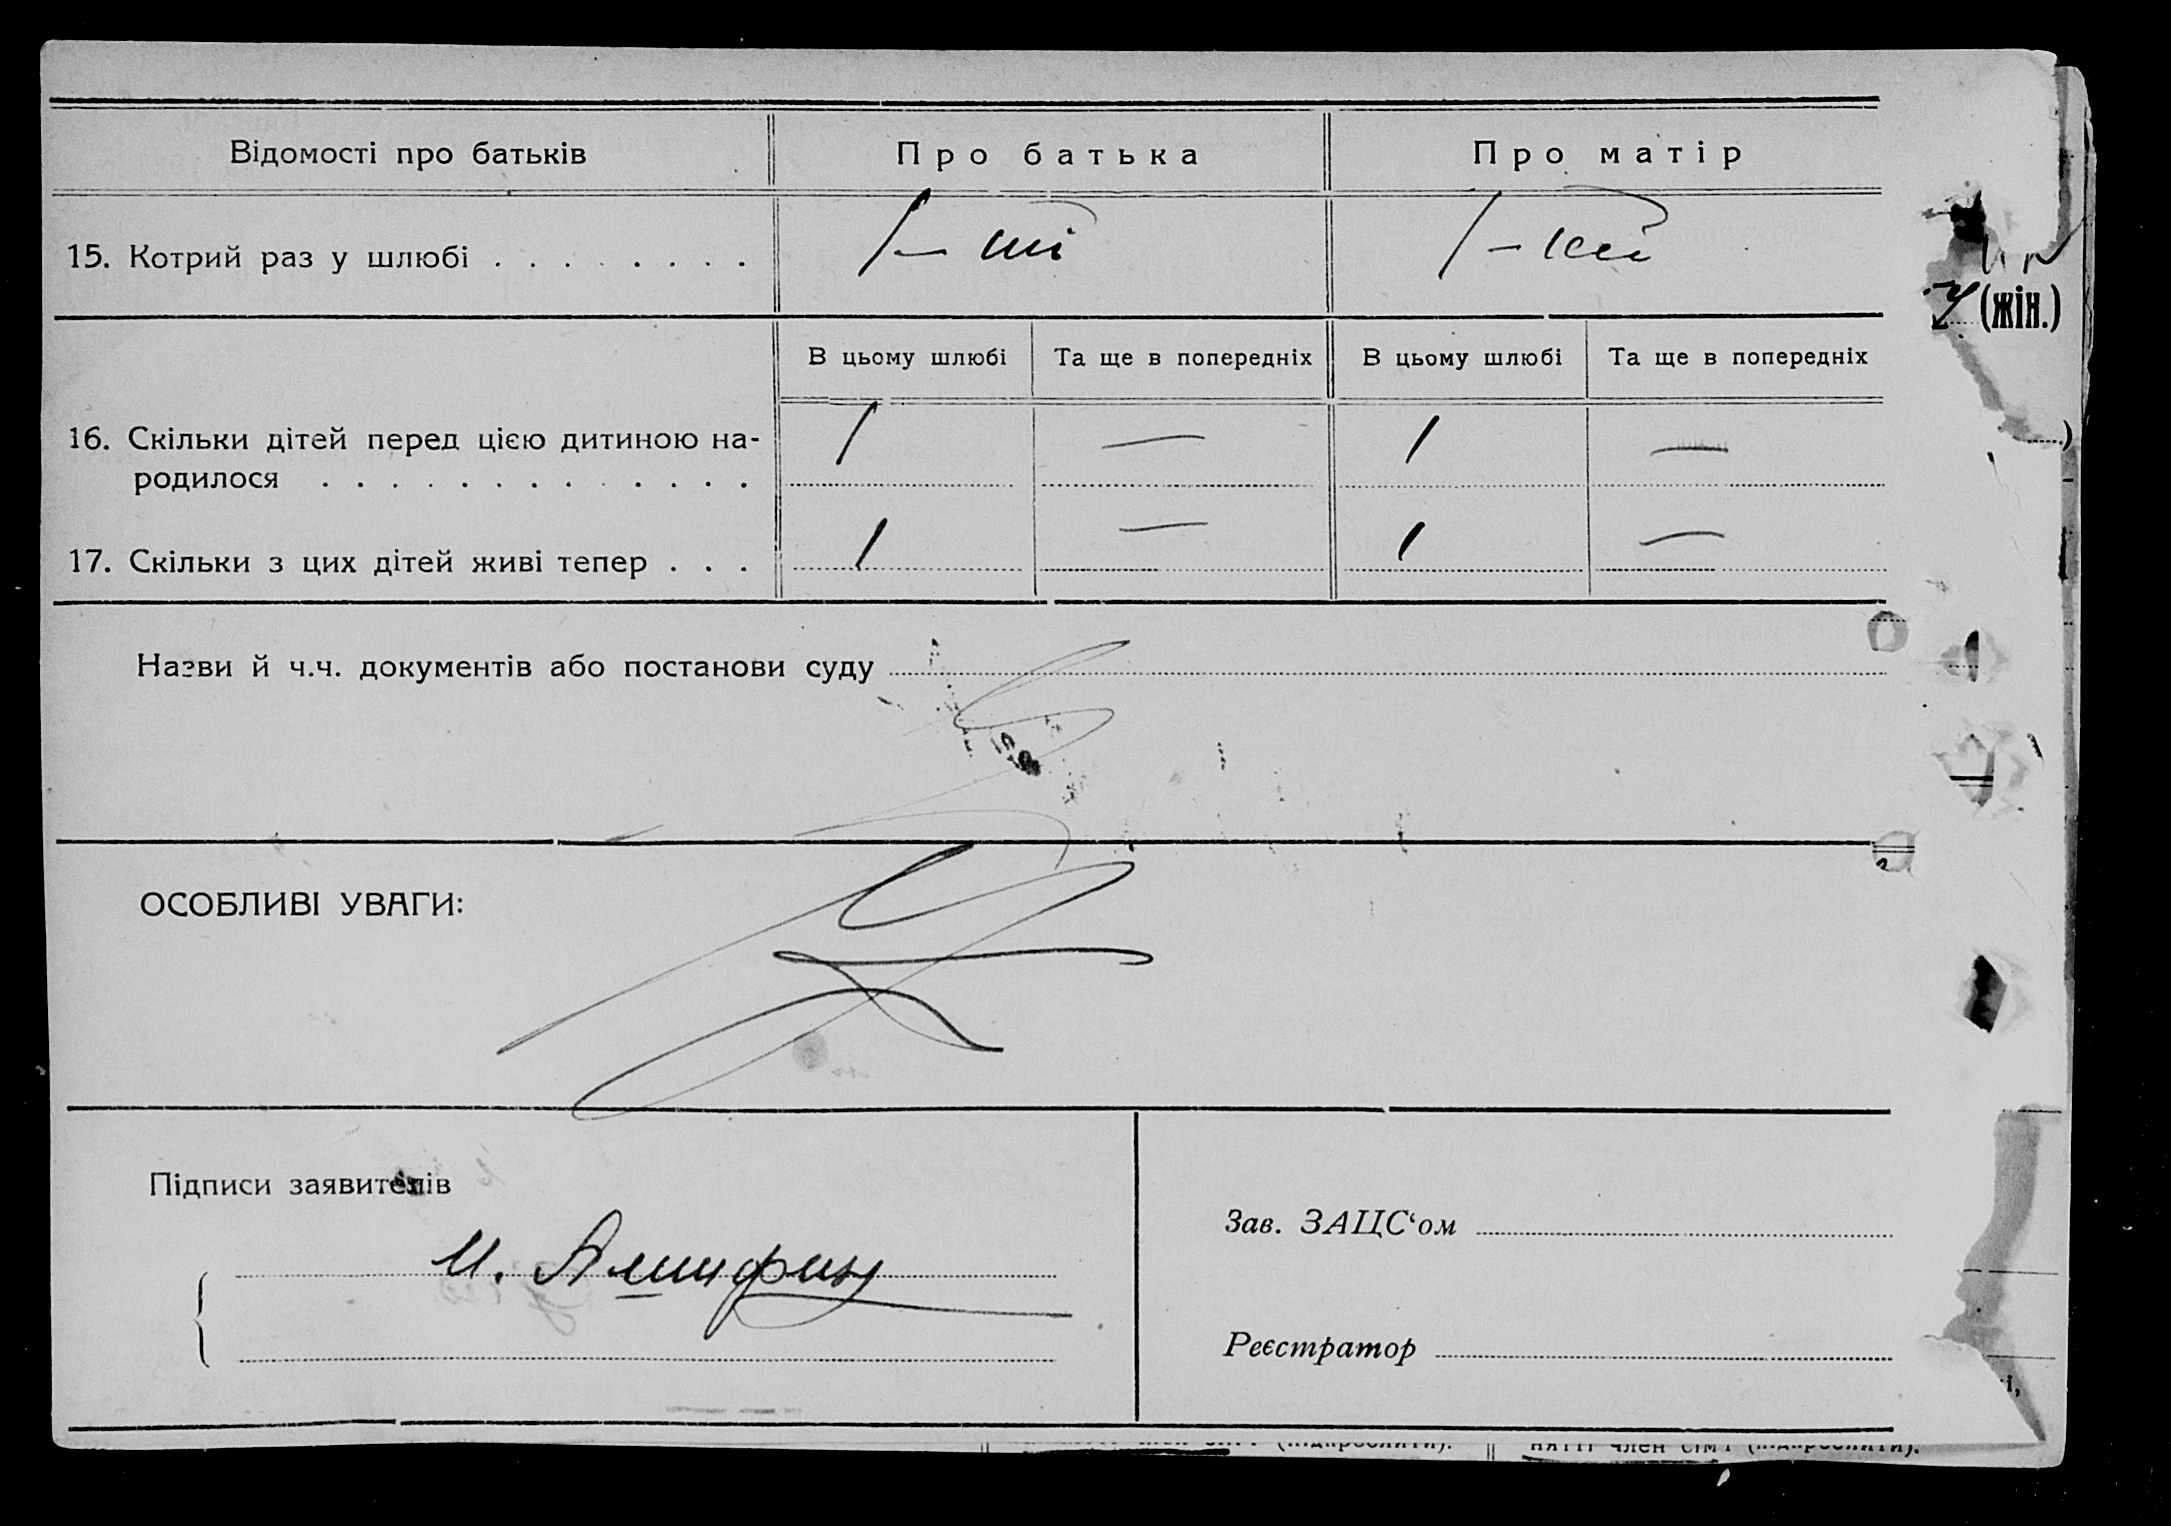 Відомості про батьків Про батька Про матір
15. Котрий раз у шлюбі . . . . . . . . 1 – ий 1 – ий
(жін.)
В цьому шлюбі Та ще в попередніх В цьому шлюбі Та ще в попередніх
16. Скільки дітей перед цією дитиною на- 1 — 1 —
родилося . . . . . . . . . . . . . .
17. Скільки з цих дітей живі тепер . . . 1 — 1 —
Назви й ч.ч. документів або постанови суду
ОСОБЛИВІ УВАГИ:
Підписи заявителів
Зав. ЗАЦС‘ом
И.
Реєстратор